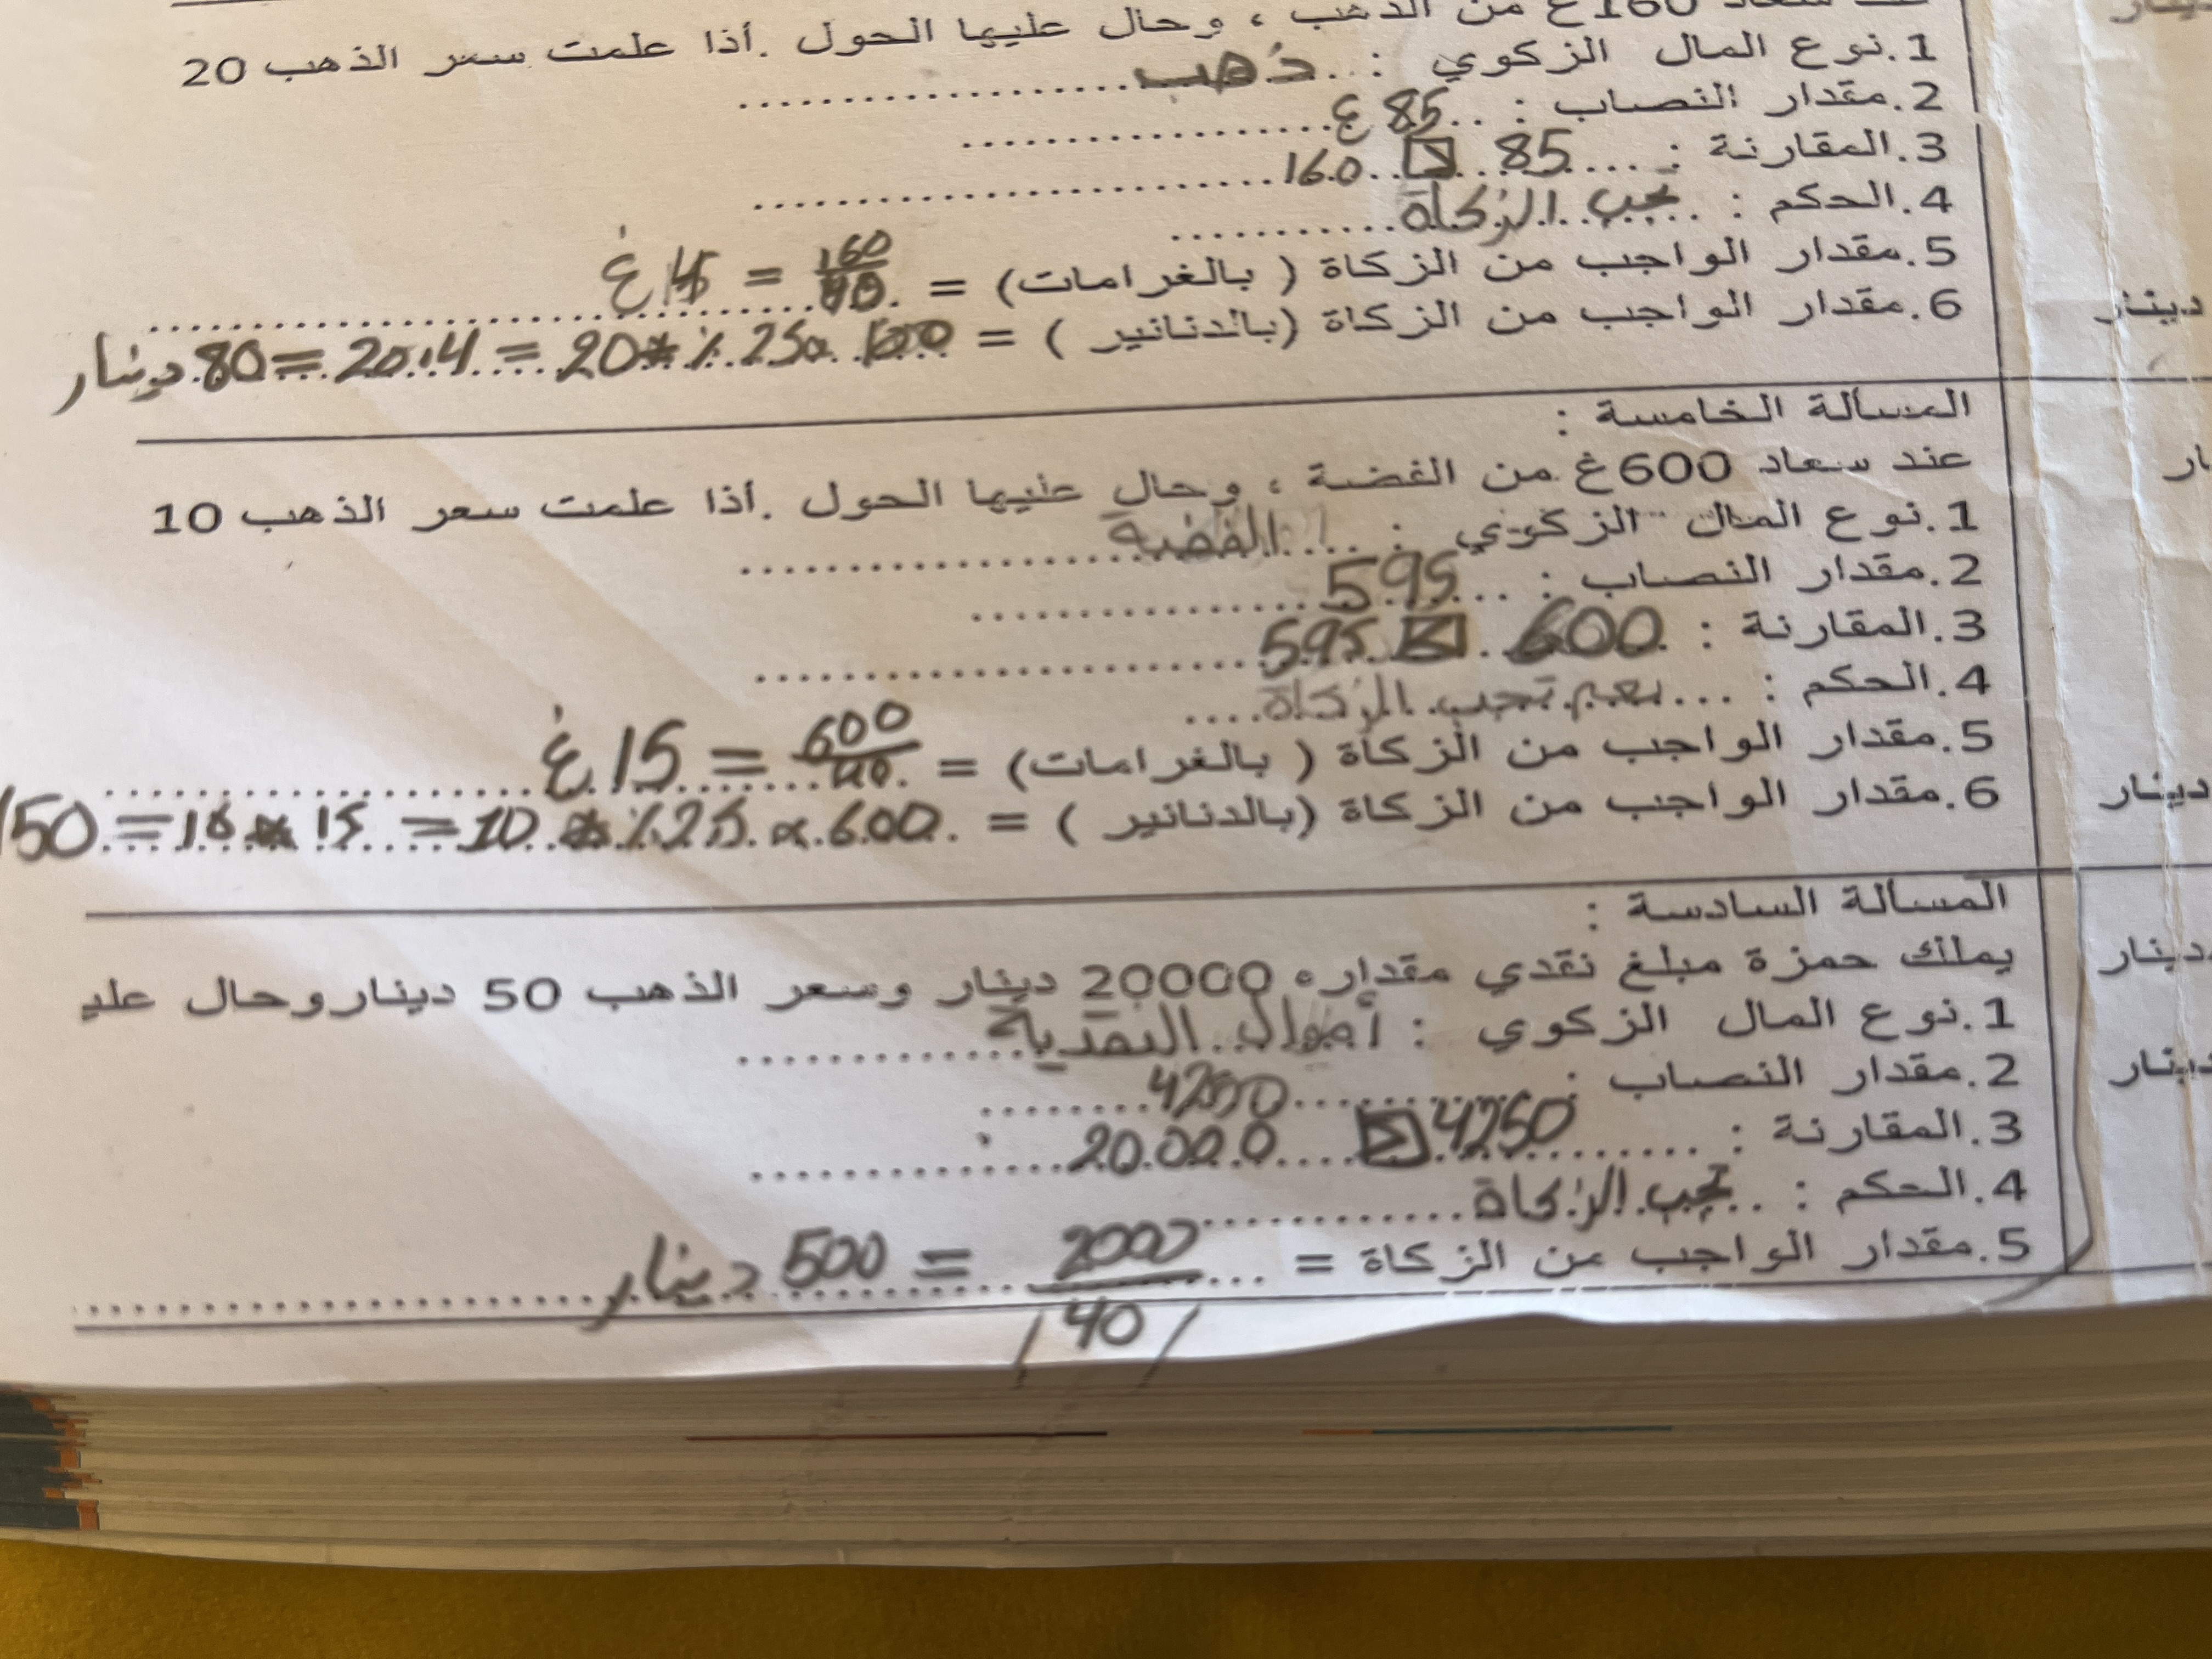 160غ من الذهب ، وحال عليها الحول .أذا علمت سعر الذهب 20
1.نوع المال الزكوي : ذهب
2.مقدار النصاب : 85 غ
3.المقارنة : 85 < 160
4.الحكم : تجب الزكاة
5.مقدار الواجب من الزكاة ( بالغرامات) = 160/40 = غ
6.مقدار الواجب من الزكاة (بالدنانير ) = 20 = 20.4 = 80 دينار
المسألة الخامسة :
عند سعاد 600غ من الفضة ، وحال عليها الحول .أذا علمت سعر الذهب 10
1.نوع المال الزكوي : الفضة
2.مقدار النصاب : 595
3.المقارنة : 600 595
4.الحكم : نعم تجب الزكاة
5.مقدار الواجب من الزكاة ( بالغرامات) = 600/40 = 15 غ
6.مقدار الواجب من الزكاة (بالدنانير ) = 600 × 2.5% * 10 = 15 * 10 = 150
المسألة السادسة :
يملك حمزة مبلغ نقدي مقداره 20000 دينار وسعر الذهب 50 دينار وحال علي
1.نوع المال الزكوي : أموال النقدية
2.مقدار النصاب : 4250
3.المقارنة : 4250 20.000
4.الحكم : تجب الزكاة
5.مقدار الواجب من الزكاة = 2000/40 = 500 دينار
دينار
دينار
دينار
دينار